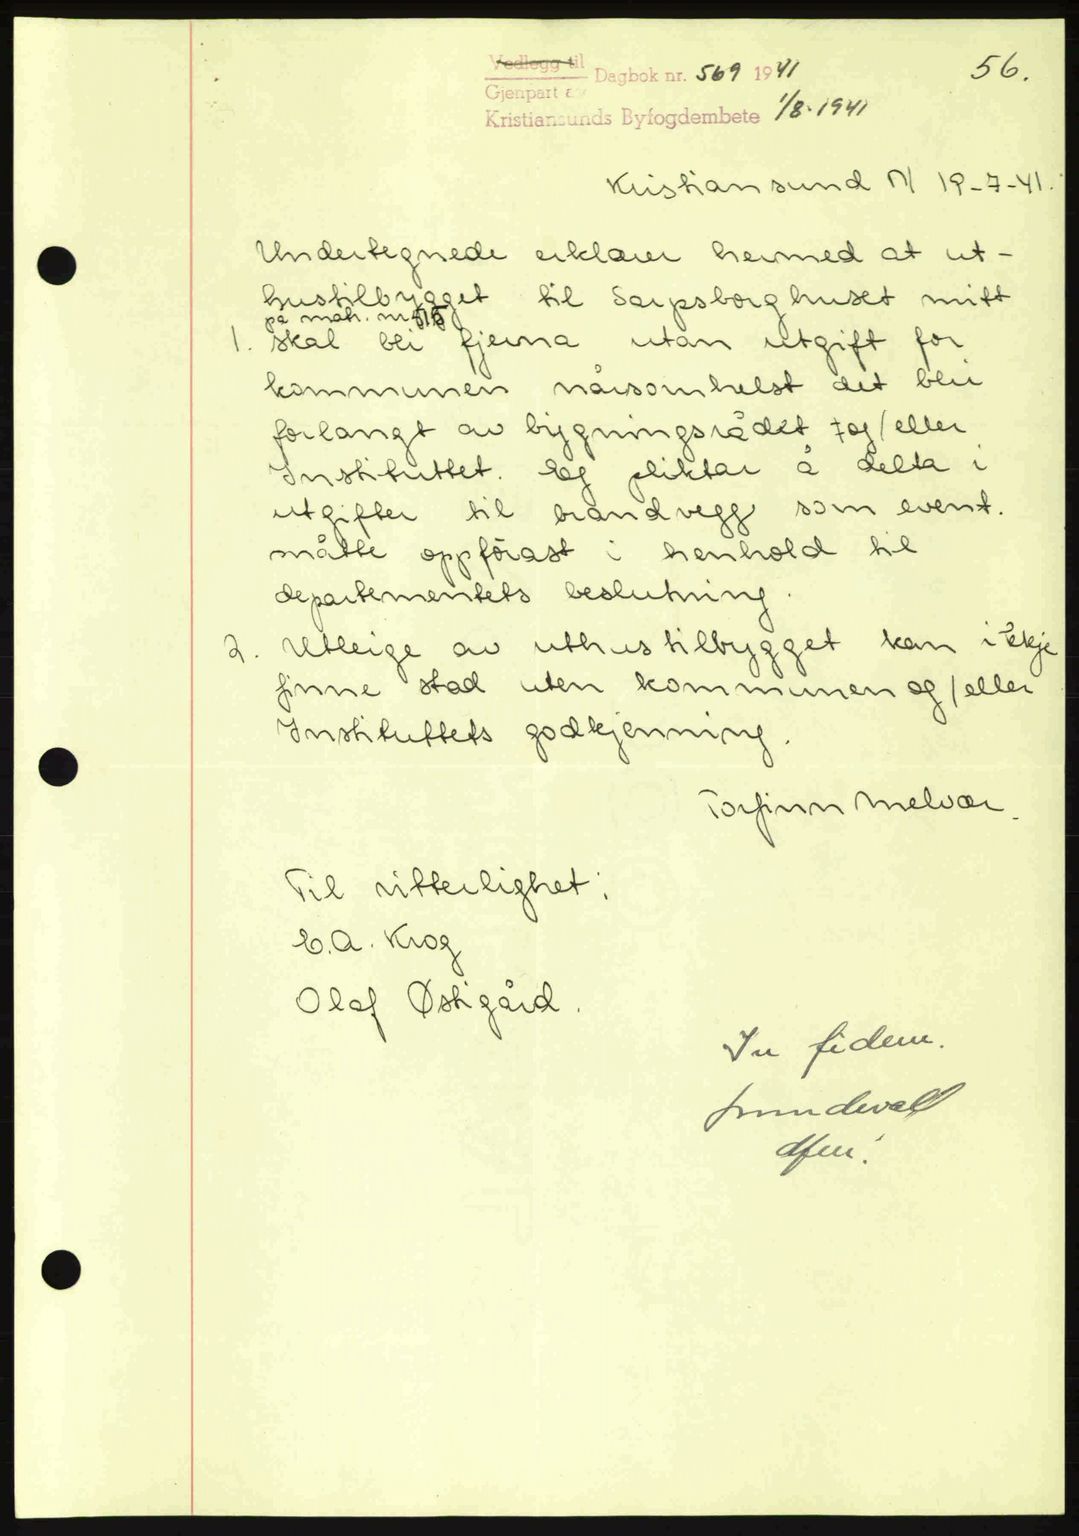 Vedlegg til
Dagbok nr. 569 1941
56.
Gjenpart av
Kristiansunds Byfogdembete 1/8-1941
Kristiansund N/ 19-7-41.
Undertegnede erklærer hermed at ut-
hustilbygget til Sarpsborghuset mitt
på matr. nr
1. skal bli fjerna utan utgift for
kommunen nårsomhelst det blir
forlangt av bygningsrådet og/eller
Instituttet. Eg pliktar å delta i
utgifter til brandvegg som event.
måtte oppförast i henhold til
departementets beslutning.
2. Utleige av uthustilbygget kan ikkje
finne stad uten kommunen og/eller
Instituttets godkjenning.
Torfinn Melvær.
Til vitterlighet:
E.A. Krog
Olaf Østigård.
In fidem.